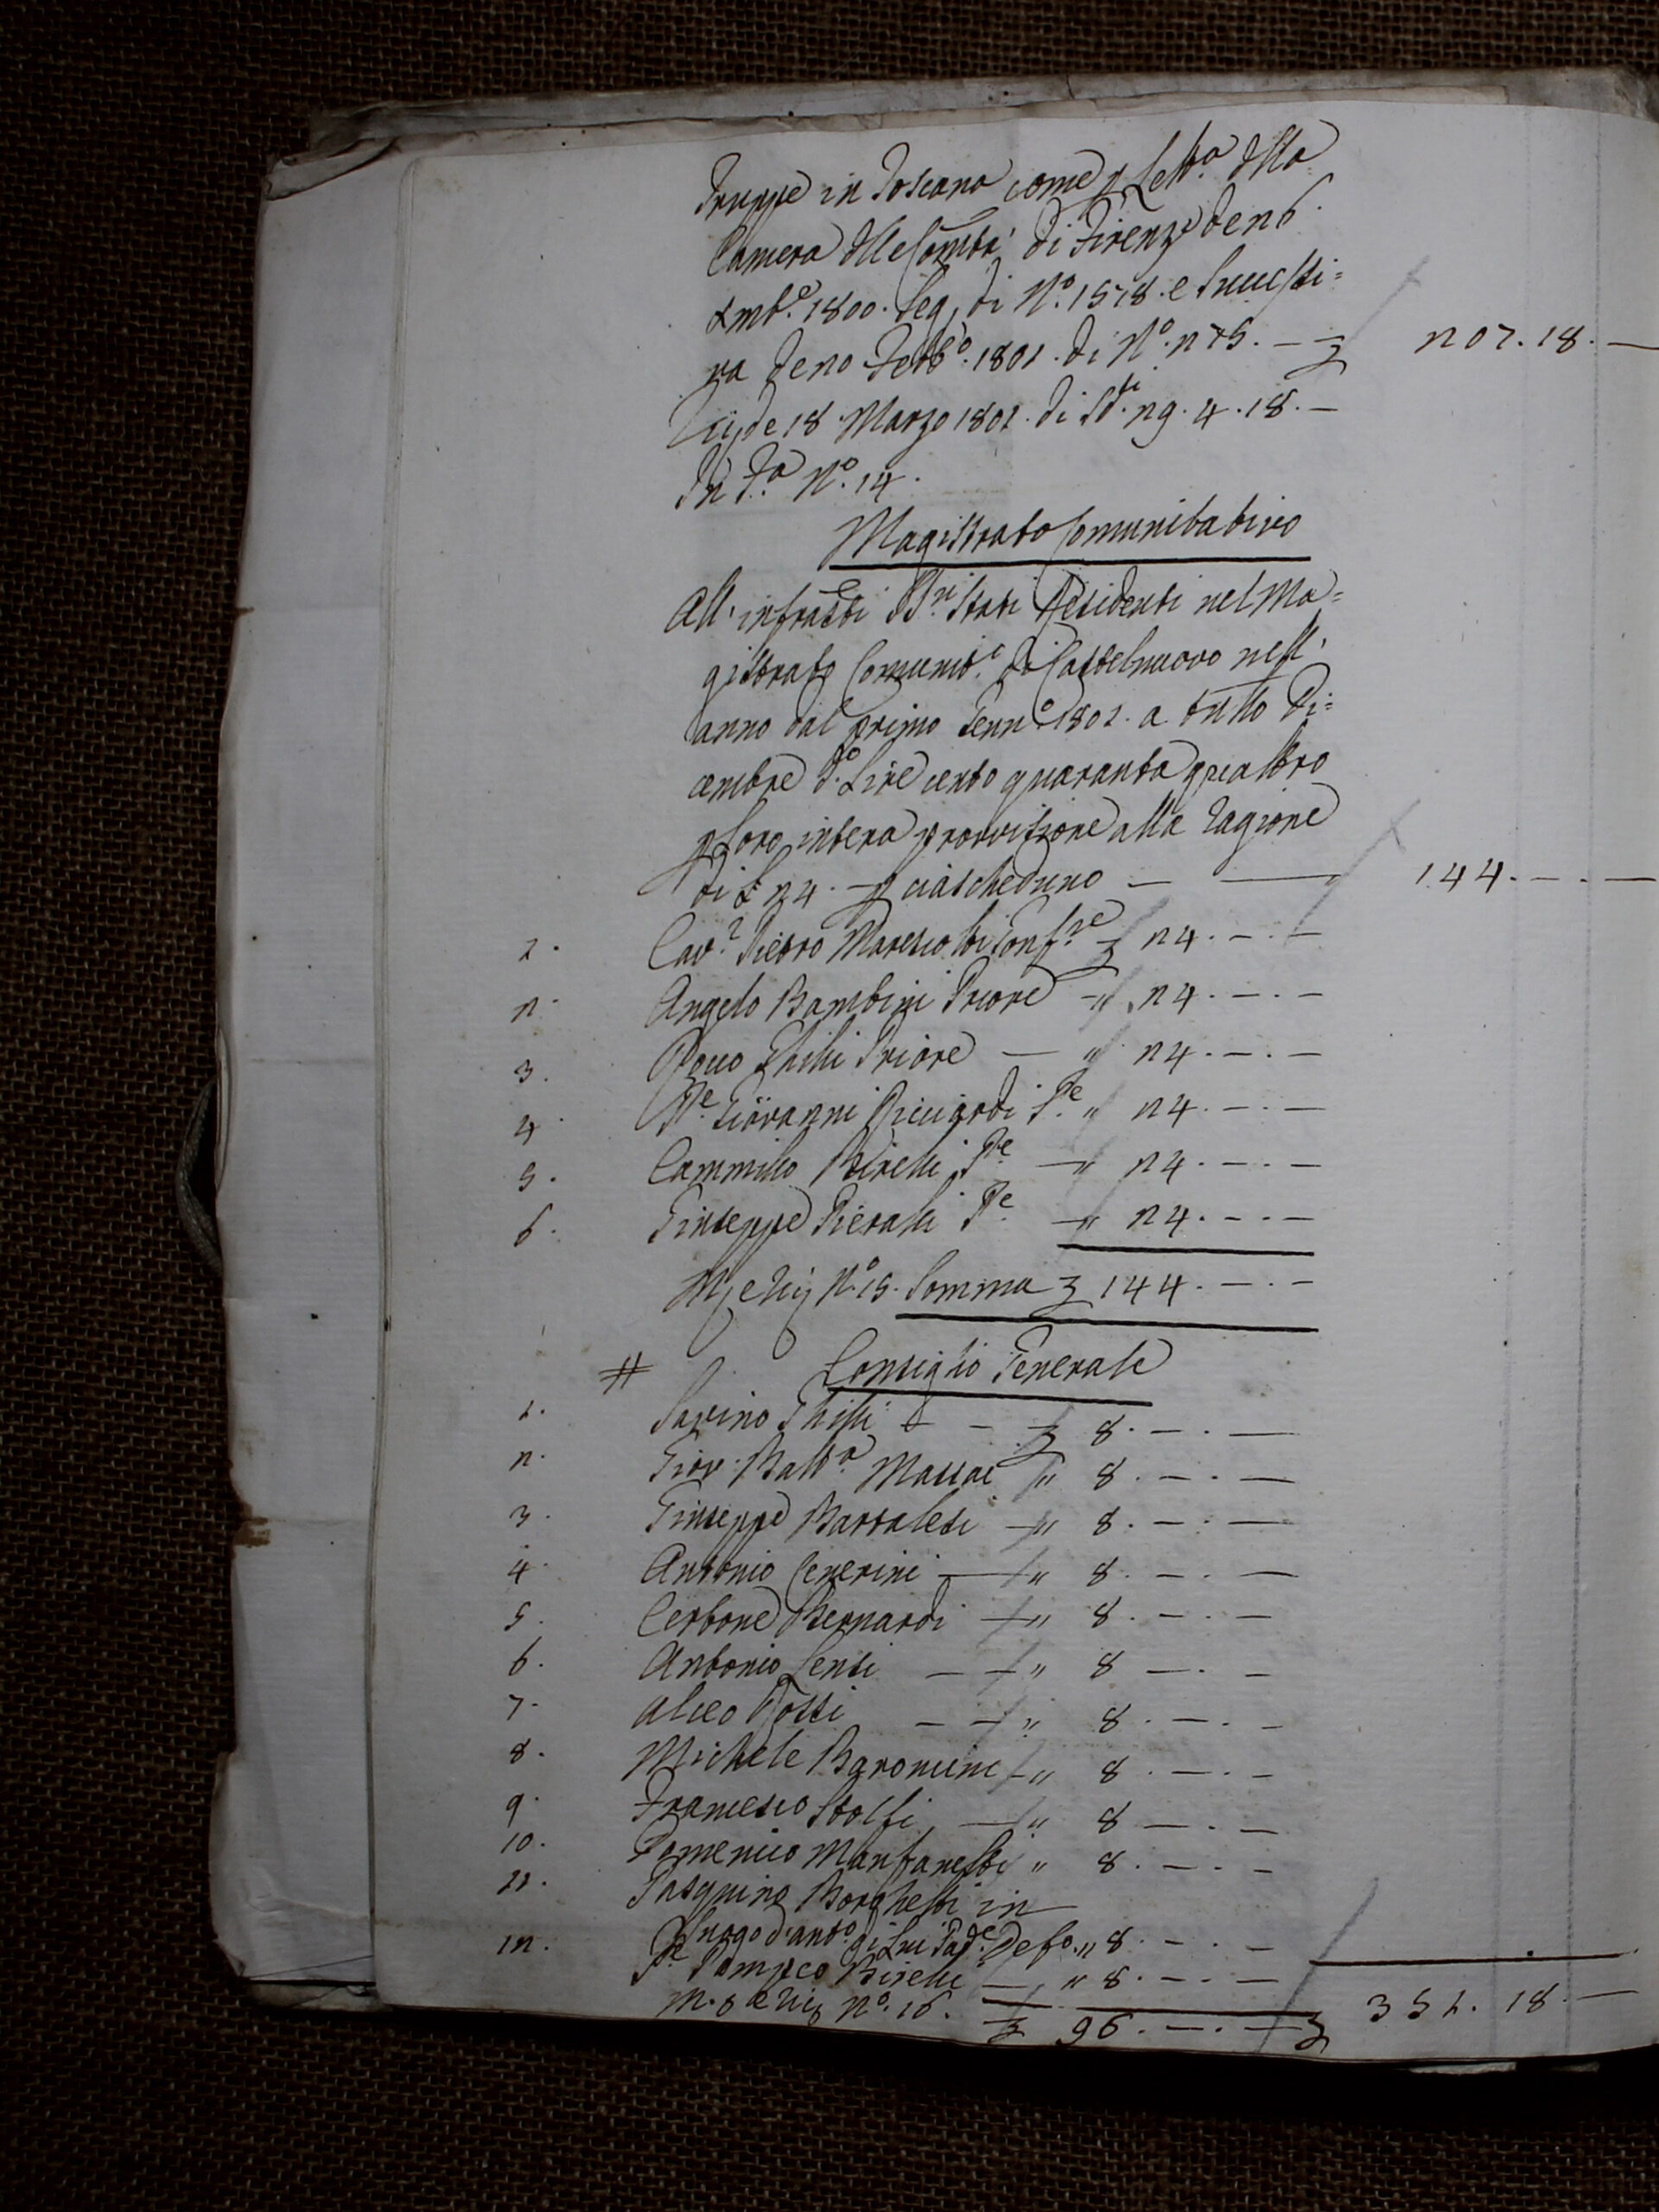 Truppe in Toscana come p Lett.a dlla
Camera dlle Comtà di Firenze de 26
Xmb.e 1800. Seg. di N.o 1518. e Successi=
va de 20 Febb.o 1801. di N.o 275. — £ 207. 18. —
18 Marzo 1801. di Sd.i 29. 4. 18. —
In F.a N.o 14.
Magistrato Comunitativo
All' infratti SS.ri Stati Residenti nel Ma=
gistrato Comunit.o di Castelnuovo nell'
anno dal primo Genn.o 1801. a tutto Di=
cembre d.o Lire cento quaranta quattro
p loro intera provvisione alla ragione
di £ 24. — p ciascheduno — — 144. — . —
1. Cav.r Pietro Marescotti Gonf.re £ 24. — . —
2. Angelo Bambini Priore — " 24. — . —
3. Rocco Ghilli Priore — " 24. — . —
4. P.e Giovanni Ricciardi P.e " 24. — . —
5. Cammillo Birelli P.e — " 24. — . —
6. Giuseppe Pieralli P.e — " 24. — . —
N.o 15. Somma £ 144. — . —
# Consiglio Generale
1. Savino Ghilli — — £ 8. — . —
2. Giov. Batt.a Massai " 8. — . —
3. Giuseppe Bartalesi — " 8. — . —
4. Antonio Cenerini — " 8. — . —
5. Cerbone Bernardi — " 8. — . —
6. Antonio Sensi — — " 8 — . —
7. Alceo Rossi — — " 8. — . —
8. Michele Baroncini — " 8. — . —
9. Francesco Stolfi — " 8 — . —
10. Domenico Manfanetti " 8. — . —
11. Pasquino Borghetti in
luogo d'Ant.o di Lui Pad.e Defo. " 8. — . —
12. P.e Pompeo Birelli — " 8. — . —
N.o 16. £ 96. — . — £ 351. 18. —